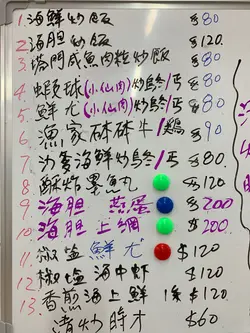 1. 海鮮炒飯 $80
2 海胆炒飯 $120
3. 塔門咸魚肉粒炒飯 $80
4 蝦球(小仙肉)炒烏冬/丐 $80
5 鮮尤(小仙肉)炒烏冬/丐 $80
6 漁家碎碎牛/鷄 $90
7. 沙爹海鮮炒烏冬/丐 $80
8 酥炸墨丸 $120
9. 海胆蒸蛋 $200
10. 海胆上網 $200
11. 椒塩鮮尤 $120
12. 椒塩海中蝦 $120
13. 香煎海上鮮 1條 $120
渚炒時才 $60